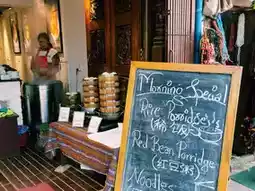 Morning Special
Rice Porridge
Red Bean Porridge
(紅豆粥)
Noodles